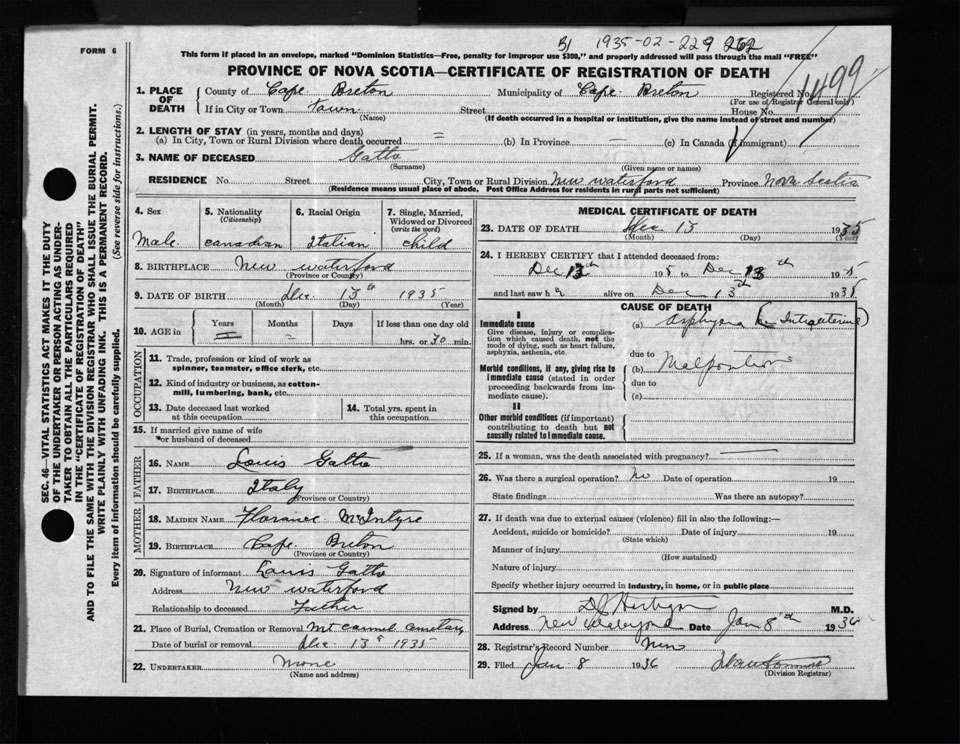 FORM 6
BJ 1935-02-229 262
1499
This form if placed in an envelope, marked "Dominion Statistics—Free, penalty for improper use $300," and properly addressed will pass through the mail "FREE"
PROVINCE OF NOVA SCOTIA—CERTIFICATE OF REGISTRATION OF DEATH
1. PLACE OF DEATH
County of Cape Breton Municipality of Cape Breton Registered No.
(For use of Registrar General only)
If in City or Town Town Street House No.
(Name) (If death occurred in a hospital or institution, give the name instead of street and number)
2. LENGTH OF STAY (in years, months and days)
(a) In City, Town or Rural Division where death occurred = (b) In Province — (c) In Canada (if immigrant)
3. NAME OF DECEASED Gatto
(Surname) (Given name or names)
RESIDENCE No. Street City, Town or Rural Division New Waterford Province Nova Scotia
(Residence means usual place of abode. Post Office Address for residents in rural parts not sufficient)
4. Sex
Male
5. Nationality (Citizenship)
canadian
6. Racial Origin
Italian
7. Single, Married, Widowed or Divorced (write the word)
child
8. BIRTHPLACE New waterford
(Province or Country)
9. DATE OF BIRTH Dec 13th 1935
(Month) (Day) (Year)
10. AGE in Years Months Days If less than one day old
hrs. or 30 min.
OCCUPATION
11. Trade, profession or kind of work as spinner, teamster, office clerk, etc.
12. Kind of industry or business, as cotton-mill, lumbering, bank, etc.
13. Date deceased last worked at this occupation
14. Total yrs. spent in this occupation
15. If married give name of wife or husband of deceased
FATHER
16. NAME Louis Gatto
17. BIRTHPLACE Italy
(Province or Country)
MOTHER
18. MAIDEN NAME Florance McIntyre
19. BIRTHPLACE Cape Breton
(Province or Country)
20. Signature of informant Louis Gatto
Address New waterford
Relationship to deceased Father
21. Place of Burial, Cremation or Removal Mt carmel cemetary
Date of burial or removal Dec 13th 1935
22. UNDERTAKER None
(Name and address)
MEDICAL CERTIFICATE OF DEATH
23. DATE OF DEATH Dec 13 1935
(Month) (Day) (Year)
24. I HEREBY CERTIFY that I attended deceased from:
Dec 13th 1935 to Dec 13th 1935
and last saw h alive on Dec 13th 1935
CAUSE OF DEATH
I
Immediate cause
Give disease, injury or complication which caused death, not the mode of dying, such as heart failure, asphyxia, asthenia, etc.
(a) Asphyxia (Intrauterine)
due to
Morbid conditions, if any, giving rise to immediate cause (stated in order proceeding backwards from immediate cause).
(b) Malposition
due to
(c)
II
Other morbid conditions (if important) contributing to death but not causally related to immediate cause.
25. If a woman, was the death associated with pregnancy? —
26. Was there a surgical operation? No Date of operation 19
State findings Was there an autopsy?
27. If death was due to external causes (violence) fill in also the following:—
Accident, suicide or homicide? Date of injury 19
(State which)
Manner of injury
(How sustained)
Nature of injury
Specify whether injury occurred in industry, in home, or in public place
Signed by M.D.
Address New Waterford Date Jan 8th 1936
28. Registrar's Record Number
29. Filed Jan 8 1936
(Division Registrar)
SEC. 46—VITAL STATISTICS ACT MAKES IT THE DUTY
OF THE UNDERTAKER OR PERSON ACTING AS UNDER-
TAKER TO OBTAIN ALL THE PARTICULARS REQUIRED
IN THE "CERTIFICATE OF REGISTRATION OF DEATH"
AND TO FILE THE SAME WITH THE DIVISION REGISTRAR WHO SHALL ISSUE THE BURIAL PERMIT.
WRITE PLAINLY WITH UNFADING INK. THIS IS A PERMANENT RECORD.
Every item of information should be carefully supplied. (See reverse side for instructions.)